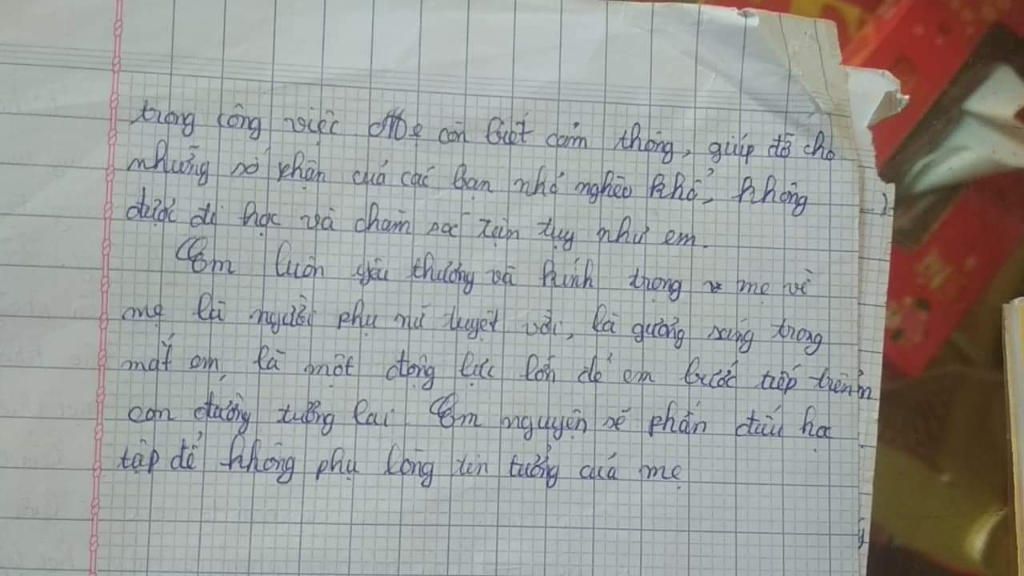 trong công việc Mẹ còn biết cảm thông, giúp đỡ cho
những số phận của các bạn nhỏ nghèo khổ, không
được đi học và chăm sóc tận tụy như em.
Em luôn yêu thương và kính trọng mẹ vì
mẹ là người phụ nữ tuyệt vời, là gương sáng trong
mắt em, là một động lực lớn để em bước tiếp trên
con đường tương lai. Em nguyện sẽ phấn đấu học
tập để không phụ lòng tin tưởng của mẹ